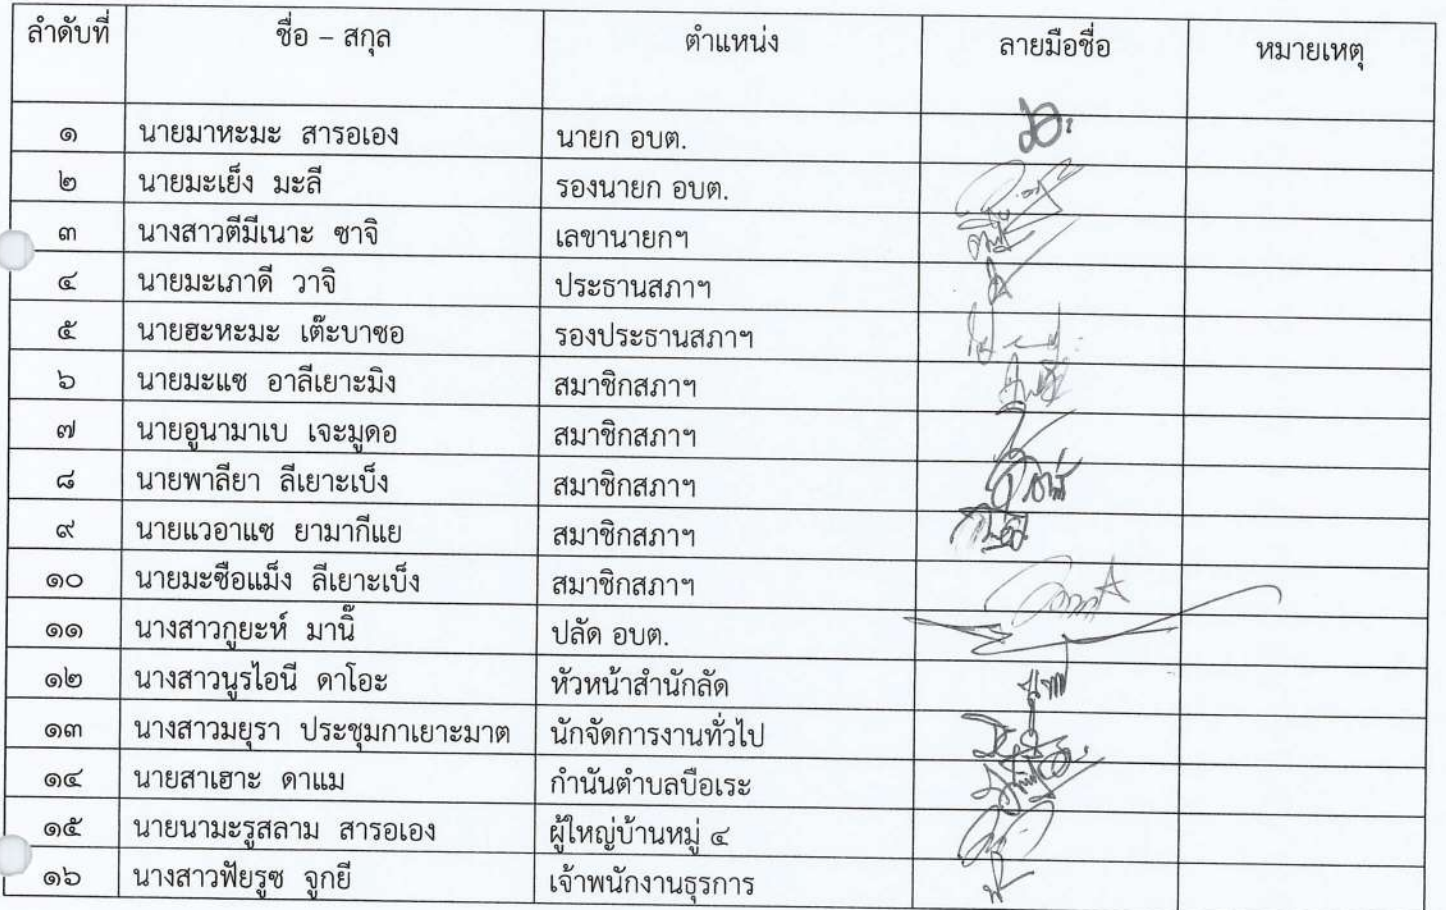 ลำดับที่ ชื่อ – สกุล ตำแหน่ง ลายมือชื่อ หมายเหตุ
๑ นายมาหะมะ สารอเอง นายก อบต.
๒ นายมะเย็ง มะลี รองนายก อบต.
๓ นางสาวตีมีเนาะ ซาจิ เลขานายกฯ
๔ นายมะเภาดี วาจิ ประธานสภาฯ
๕ นายฮะหะมะ เต๊ะบาซอ รองประธานสภาฯ
๖ นายมะแซ อาลีเยาะมิง สมาชิกสภาฯ
๗ นายอูนามาเบ เจะมูดอ สมาชิกสภาฯ
๘ นายพาลียา ลีเยาะเบ็ง สมาชิกสภาฯ
๙ นายแวอาแซ ยามากีแย สมาชิกสภาฯ
๑๐ นายมะซือแม็ง ลีเยาะเบ็ง สมาชิกสภาฯ
๑๑ นางสาวกูยะห์ มานิ๊ ปลัด อบต.
๑๒ นางสาวนูรไอนี ดาโอะ หัวหน้าสำนักลัด
๑๓ นางสาวมยุรา ประชุมกาเยาะมาต นักจัดการงานทั่วไป
๑๔ นายสาเฮาะ ดาแม กำนันตำบลบือเระ
๑๕ นายนามะรูสลาม สารอเอง ผู้ใหญ่บ้านหมู่ ๔
๑๖ นางสาวฟัยรูซ จูกยี เจ้าพนักงานธุรการ